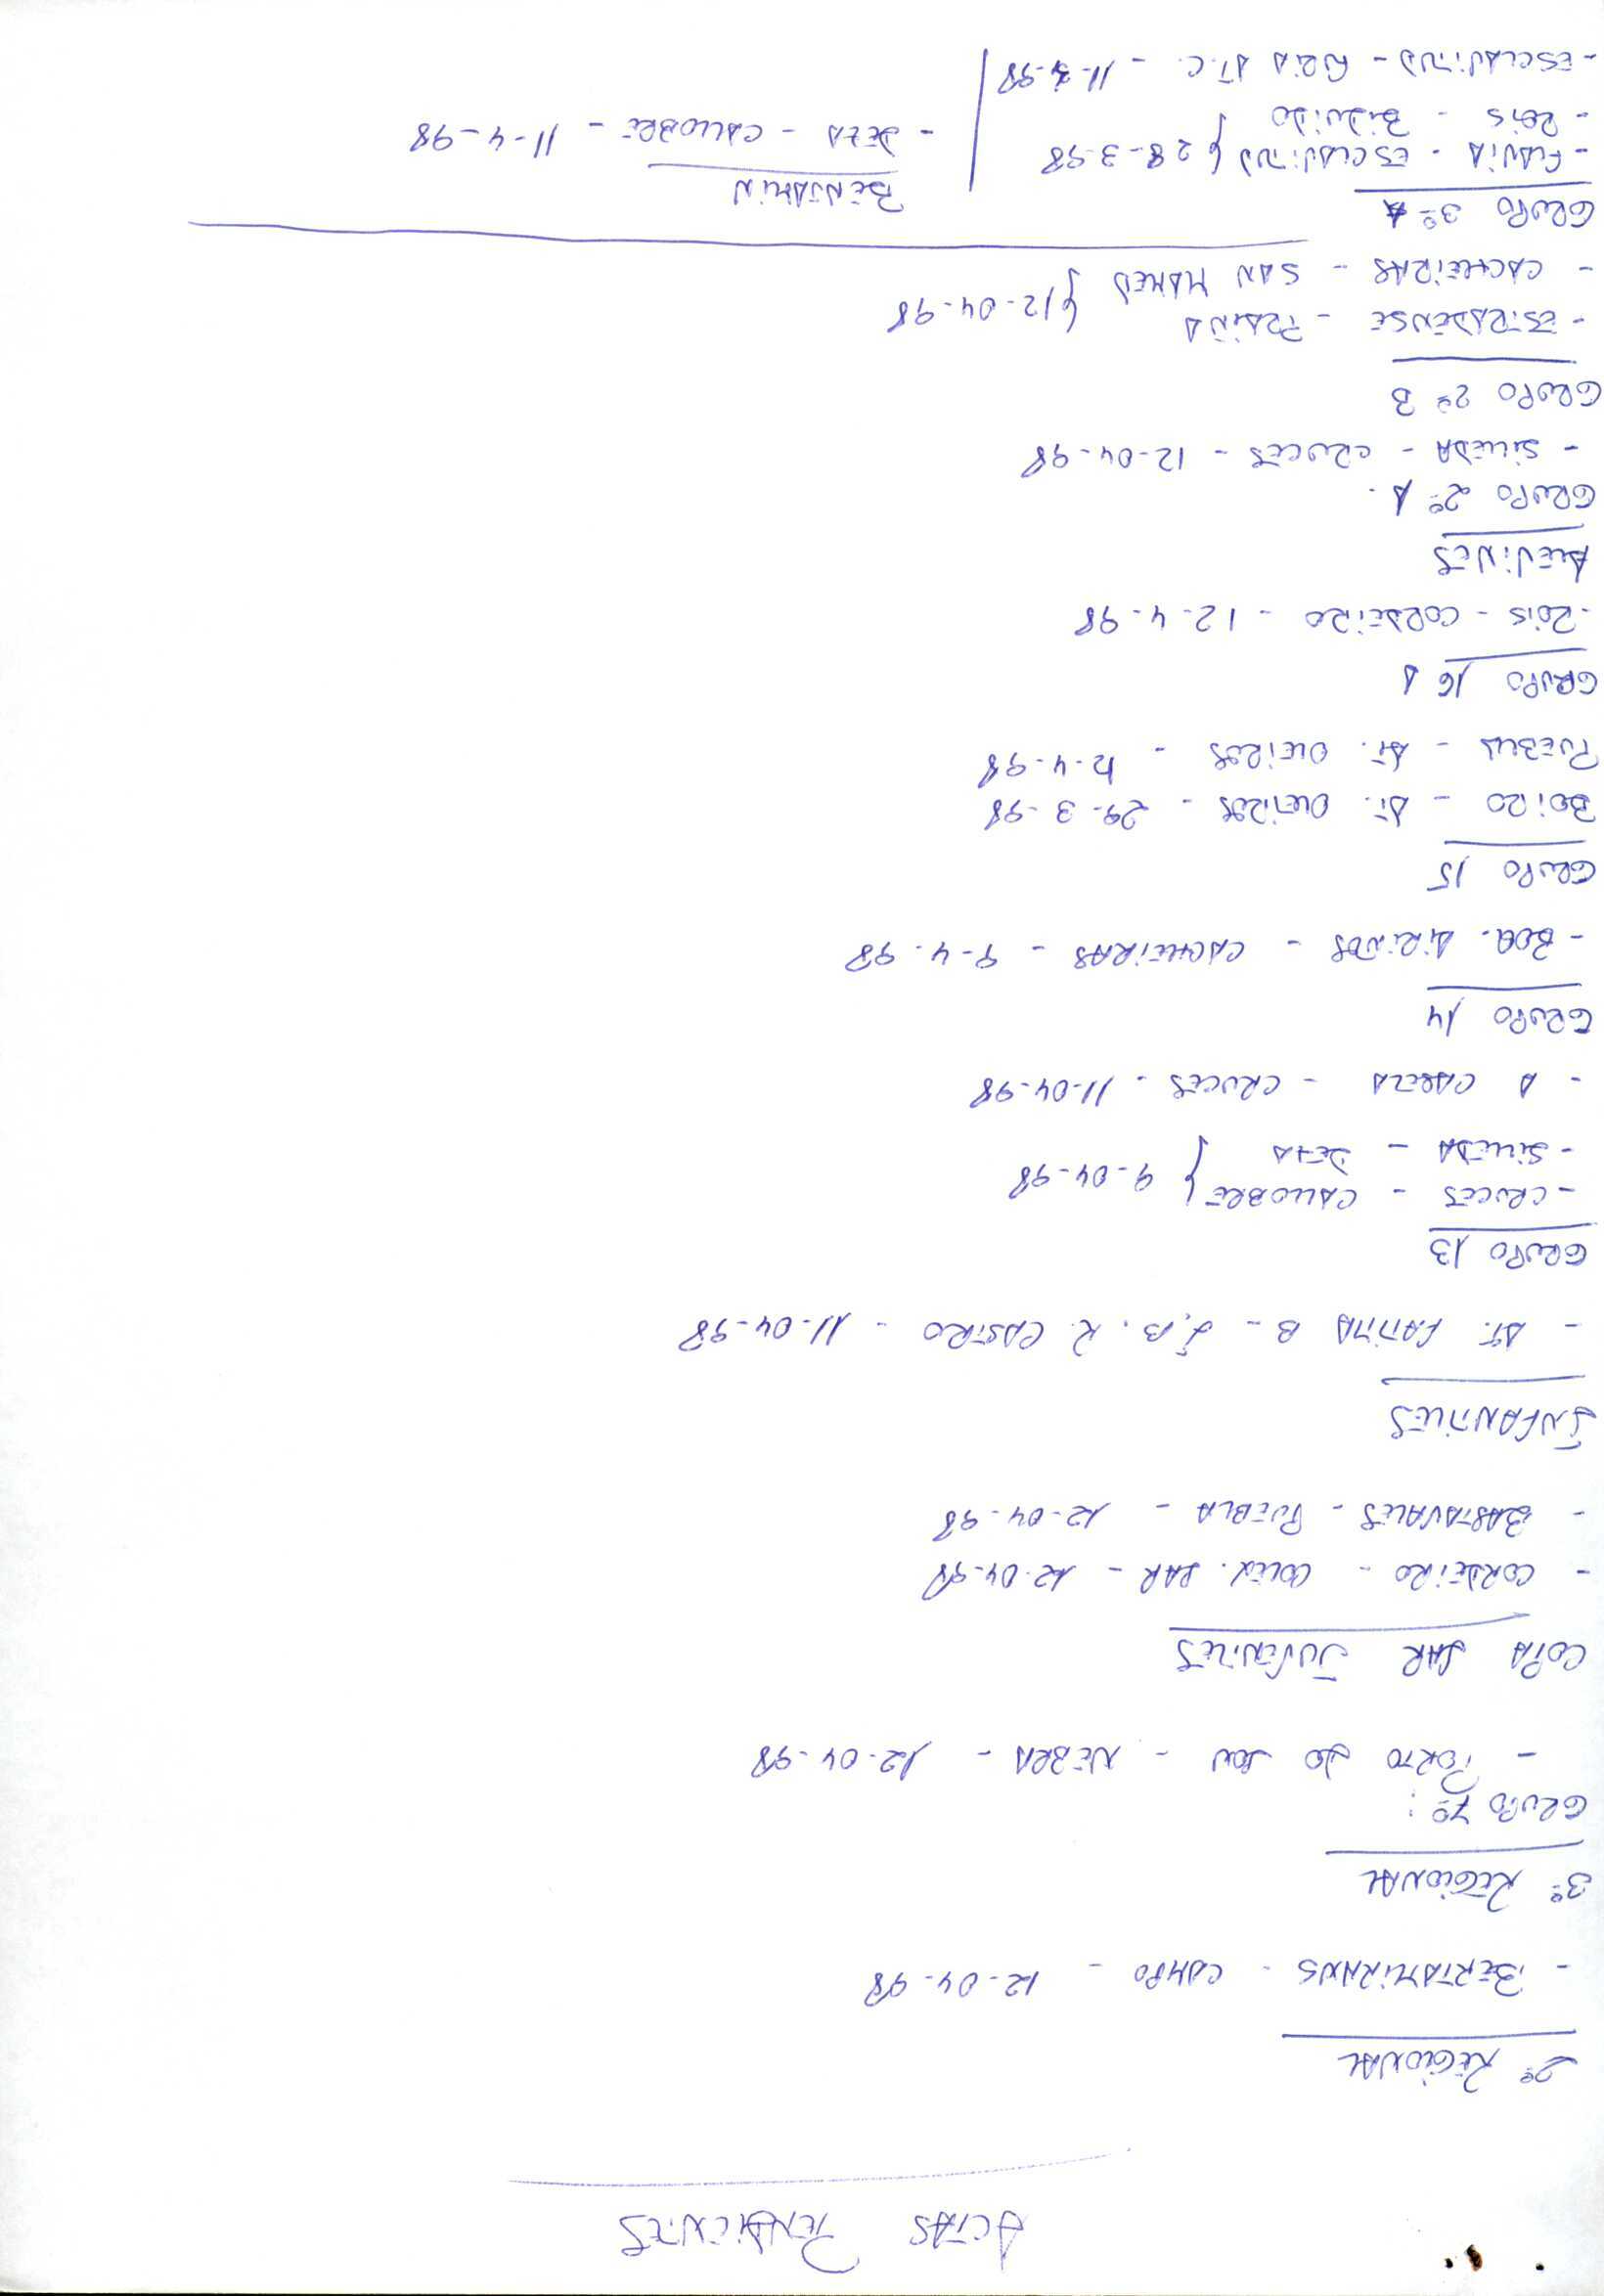 ACTAS PENDIENTES
2º REGIONAL
- BERTAMIRANS - CAMPO - 12-04-98
3º REGIONAL
GRUPO 7º:
- PORTO DO SON - NEBRA - 12-04-98
COPA SAR JUVENILES
- CORDEIRO - COLEX. SAR - 12-04-98
- BASTAVALES - PUEBLA - 12-04-98
INFANTILES
- AT. FATIMA B - J.B. R. CASTRO - 11-04-98
GRUPO 13
- CRUCES - CALLOBRE } 9-04-98
- SILLEDA - DEZA
- A CAREZA - CRUCES - 11-04-98
GRUPO 14
- BOA. AIRIÑOS - CACHEIRAS - 9-4-98
GRUPO 15
BOIRO - AT. OLEIROS - 29-3-98
PUEBLA - AT. OLEIROS - 12-4-98
GRUPO 16 A
- ROIS - CORDEIRO - 12-4-98
ALEVINES
GRUPO 2º A.
- SILLEDA - CRUCES - 12-04-98
GRUPO 2º B
- ESTRADENSE - PRAIÑA } 12-04-98
- CACHEIRAS - SAN MAMED
GRUPO 3º A
- FLAVIA - ESCLAVITUD } 28-3-98
- ROIS - BIDUIDO
- ESCLAVITUD - AT. C. -
BENJAMIN
- DEZA - CALLOBRE - 11-4-98